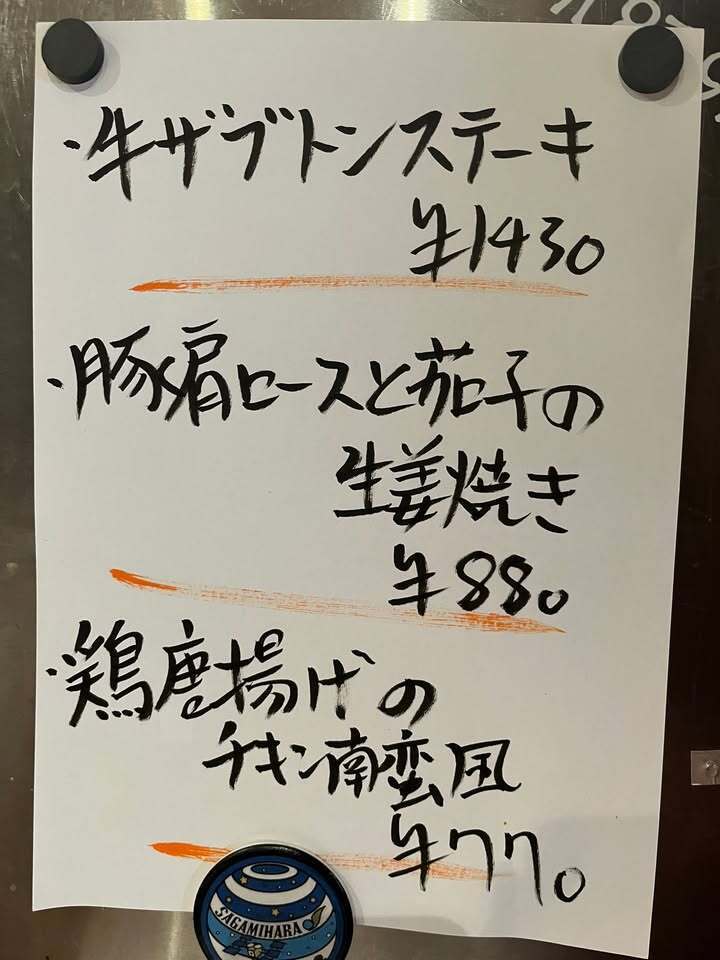 ・牛ザブトンステーキ
¥1430
・豚肩ロースと茄子の
生姜焼き
¥880
・鶏唐揚げの
チキン南蛮風
¥770
SAGAMIHARA